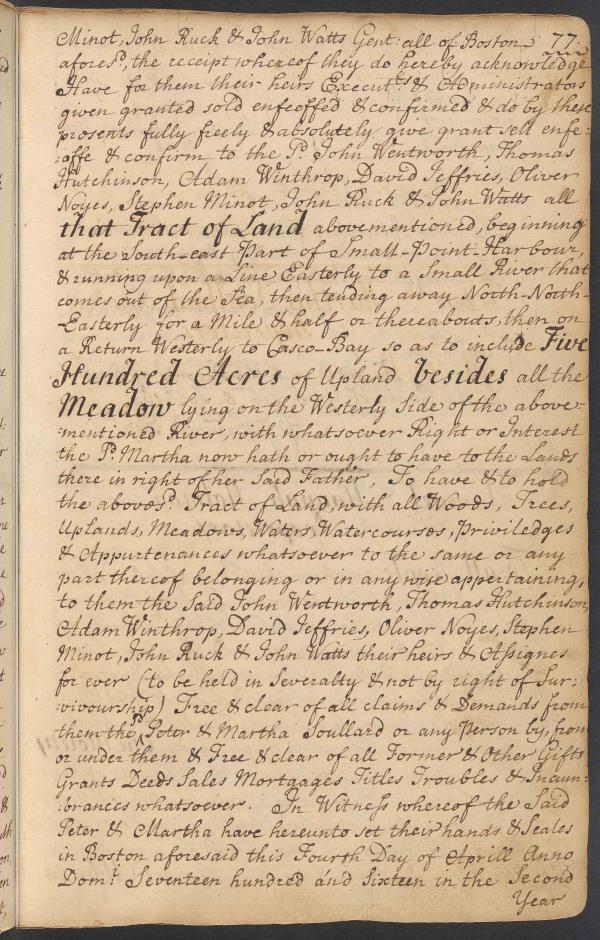 77.
Minot, John Ruck & John Watts Gent: all of Boston
afores.d, the receipt whereof they do hereby acknowledge
Have for them their heirs Execut.rs & Administrators
given granted sold enfeoffed & confirmed & do by these
presents fully freely & absolutely give grant sell enfe-
:offe & confirm to the S.d John Wentworth, Thomas
Hutchinson, Adam Winthrop, David Jeffries, Oliver
Noyes, Stephen Minot, John Ruck & John Watts all
that Tract of Land abovementioned, beginning
at the South-east Part of Small-Point-Harbour,
& running upon a Line Easterly to a Small River that
comes out of the Sea, then tending away North-North-
-Easterly for a Mile & half or thereabouts, then on
a Return Westerly to Casco-Bay so as to include Five
Hundred Acres of Upland besides all the
Meadow lying on the Westerly Side of the above-
:mentioned River, with whatsoever Right or Interest
the S.d Martha now hath or ought to have to the Lands
there in right of her Said Father, To have & to hold
the aboves.d Tract of Land, with all Woods, Trees,
Uplands, Meadows, Waters, Watercourses, Priviledges
& Appurtenances whatsoever to the same or any
part thereof belonging or in any wise appertaining,
to them the Said John Wentworth, Thomas Hutchinson,
Adam Winthrop, David Jeffries, Oliver Noyes, Stephen
Minot, John Ruck & John Watts their heirs & Assignes
for ever (to be held in Severalty & not by right of Sur:
:vivourship) Free & clear of all claims & Demands from
them the sd Peter & Martha Soullard or any Person by, from
or under them & Free & clear of all Former & Other Gifts
Grants Deeds Sales Mortgages Titles Troubles & Incum:
:brances whatsoever. In Witness whereof the Said
Peter & Martha have hereunto set their hands & Seales
in Boston aforesaid this Fourth Day of Aprill Anno
Dom.i Seventeen hundred and Sixteen in the Second
Year